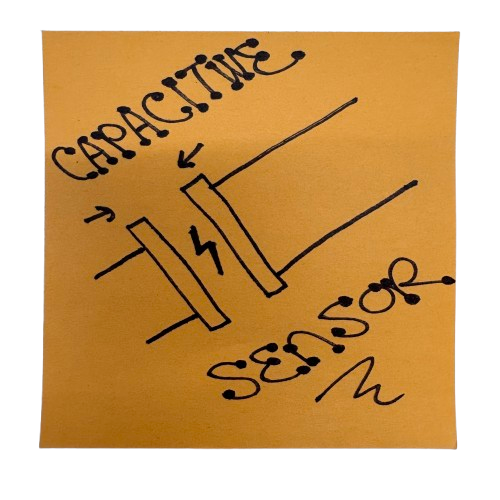 CAPACITIVE
SENSOR